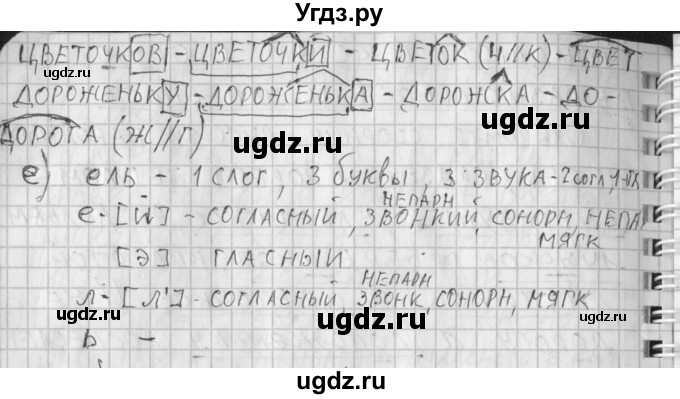 Угдз.ру
ЦВЕТОЧКОВ - ЦВЕТОЧКИ - ЦВЕТОК (Ч//К) - ЦВЕТ
ugdz.ru ugdz.ru
ДОРОЖЕНЬКУ - ДОРОЖЕНЬКА - ДОРОЖКА - ДО-
ДОРОГА (Ж//Г)
ugdz.ru ugdz.ru
е) ель - 1 слог, 3 буквы, 3 ЗВУКА - 2 согл, 1
ugdz.ru ugdz.ru
НЕПАРН
е - [Й'] - СОГЛАСНЫЙ, ЗВОНКИЙ, СОНОРН, НЕПАР
МЯГК
[Э] ГЛАСНЫЙ
ugdz.ru
НЕПАРН
л - [Л'] - СОГЛАСНЫЙ, ЗВОНК, СОНОРН, МЯГК
ugdz.ru
ь -
ugdz.ru ugdz.ru
ugdz.ru